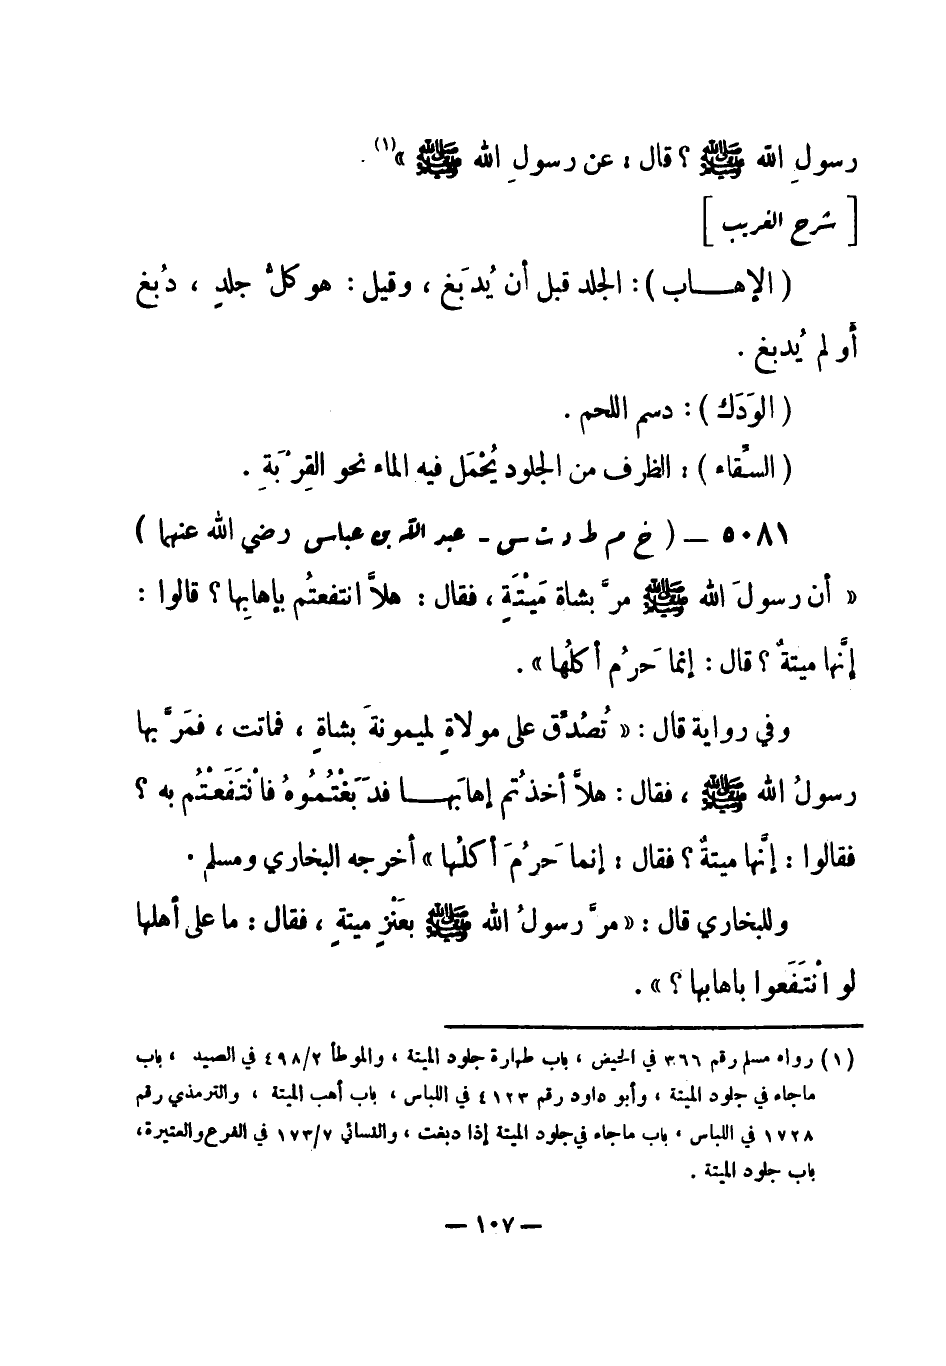 رسولِ الله ﷺ ؟ قال : عن رسولِ الله ﷺ »(١) .
[ شرح الغريب ]
( الإهـــاب ) : الجلد قبل أن يُدبَغ ، وقيل : هو كلُّ جلدٍ ، دُبغ
أو لم يُدبغ .
( الوَدَك ) : دسم اللحم .
( السِّقاء ) : الظرف من الجلود يُحْمَل فيه الماء نحو القِرْبَةِ .
٥٠٨١ — ( خ م ط د ت س - عبد الله بن عباس رضي الله عنهما )
« أن رسولَ الله ﷺ مرَّ بشاة مَيْتَةٍ ، فقال : هلاَّ انتفعتُم بإهابِها ؟ قالوا :
إنَّها ميتةٌ ؟ قال : إنما حَرُم أكلُها » .
وفي رواية قال : « تُصُدِّق على مولاةٍ لميمونةَ بشاةٍ ، فماتت ، فمَرَّ بها
رسولُ الله ﷺ ، فقال : هلاَّ أخذتُم إهابَهـــا فدَبَغْتُمُوهُ فانْتَفَعْتُم به ؟
فقالوا : إنَّها ميتةٌ ؟ فقال : إنما حَرُمَ أكلُها » أخرجه البخاري ومسلم .
وللبخاري قال : « مرَّ رسولُ الله ﷺ بعَنْزٍ ميتةٍ ، فقال : ما على أهلها
لو انْتَفَعوا باهابها ؟ » .
(١) رواه مسلم رقم ٣٦٦ في الحيض ، باب طهارة جلود الميتة ، والموطأ ٤٩٨/٢ في الصيد ، باب
ماجاء في جلود الميتة ، وأبو داود رقم ٤١٢٣ في اللباس ، باب أهب الميتة ، والترمذي رقم
١٧٢٨ في اللباس ، باب ماجاء في جلود الميتة إذا دبغت ، والنسائي ١٧٣/٧ في الفرع والعتيرة ،
باب جلود الميتة .
— ١٠٧ —